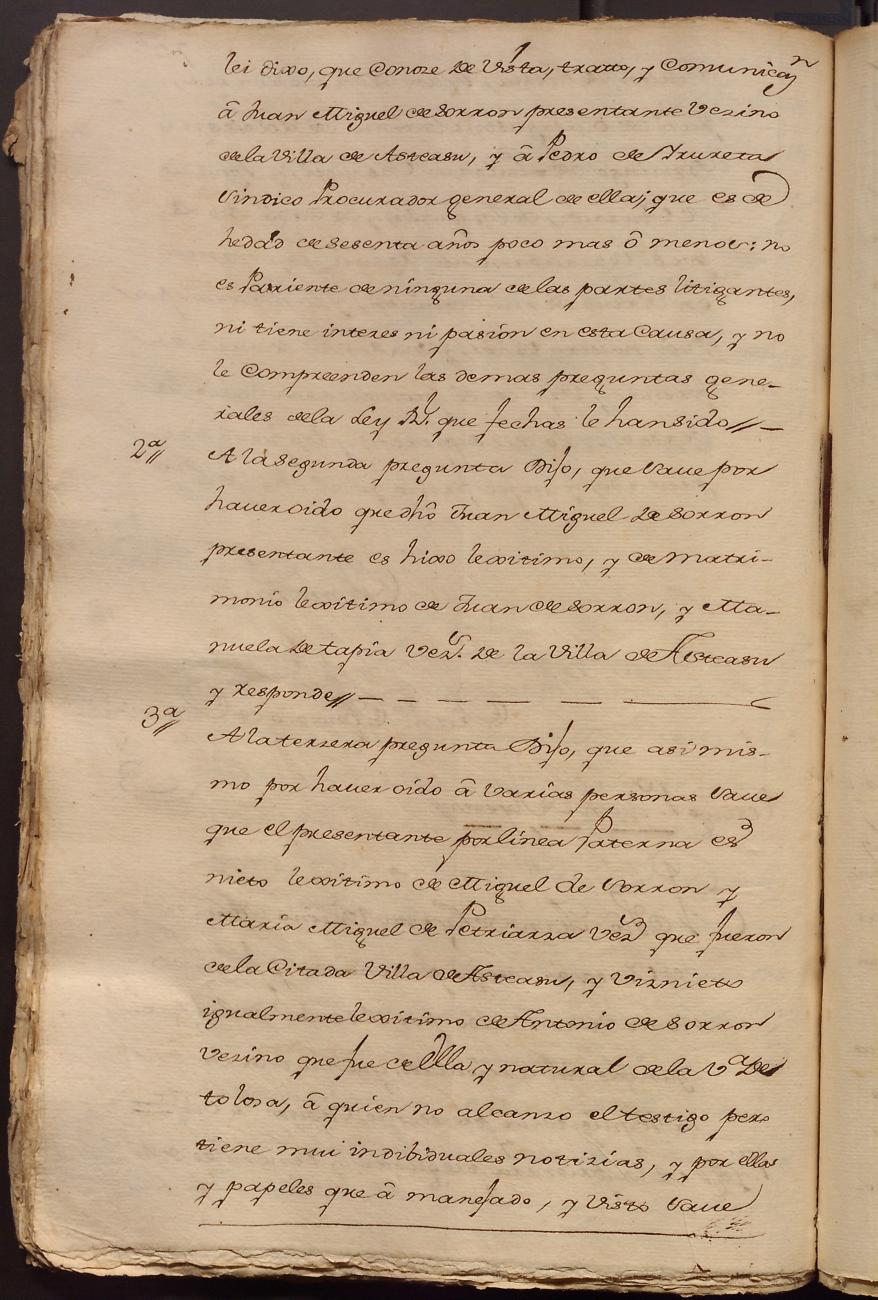 lei dixo, que Conoze de Vista, tratto, y Comunicaz.n
â Juan Miguel de Sorron presentante Vezino
de la Villa de Asteasu, y â Pedro de Yrureta
Sindico Procurador general de ella; que es de
hedad de sesenta años poco mas ô menos: no
es Pariente de ninguna de las partes litigantes,
ni tiene interes ni pasion en esta Causa, y no
le Compreenden las demas preguntas gene-
rales de la Ley Rl. que fechas le han sido //-
2ª// A la segunda pregunta Dijo, que save por
haver oido que dhô Juan Miguel de Sorron
presentante es hixo lexitimo, y de matri-
monio lexitimo de Juan de Sorron, y Ma-
nuela de tapia Vez.s de la Villa de Asteasu
y responde// - - - - -
3ª// A la terzera pregunta Dijo, que asi mis-
mo por haver oido â varias personas save
que el presentante por linea Paterna es
nieto lexitimo de Miguel de Sorron y
Maria Miguel de Petriarza Vez.s que fueron
de la Citada Villa de Asteasu, y Viznieto
igualmente lexitimo de Antonio de Sorron
Vezino que fue de Ella y natural de la V.ª de
tolosa, â quien no alcanzo el testigo pero
tiene mui indibiduales notizias, y por ellas
y papeles que â manejado, y visto save